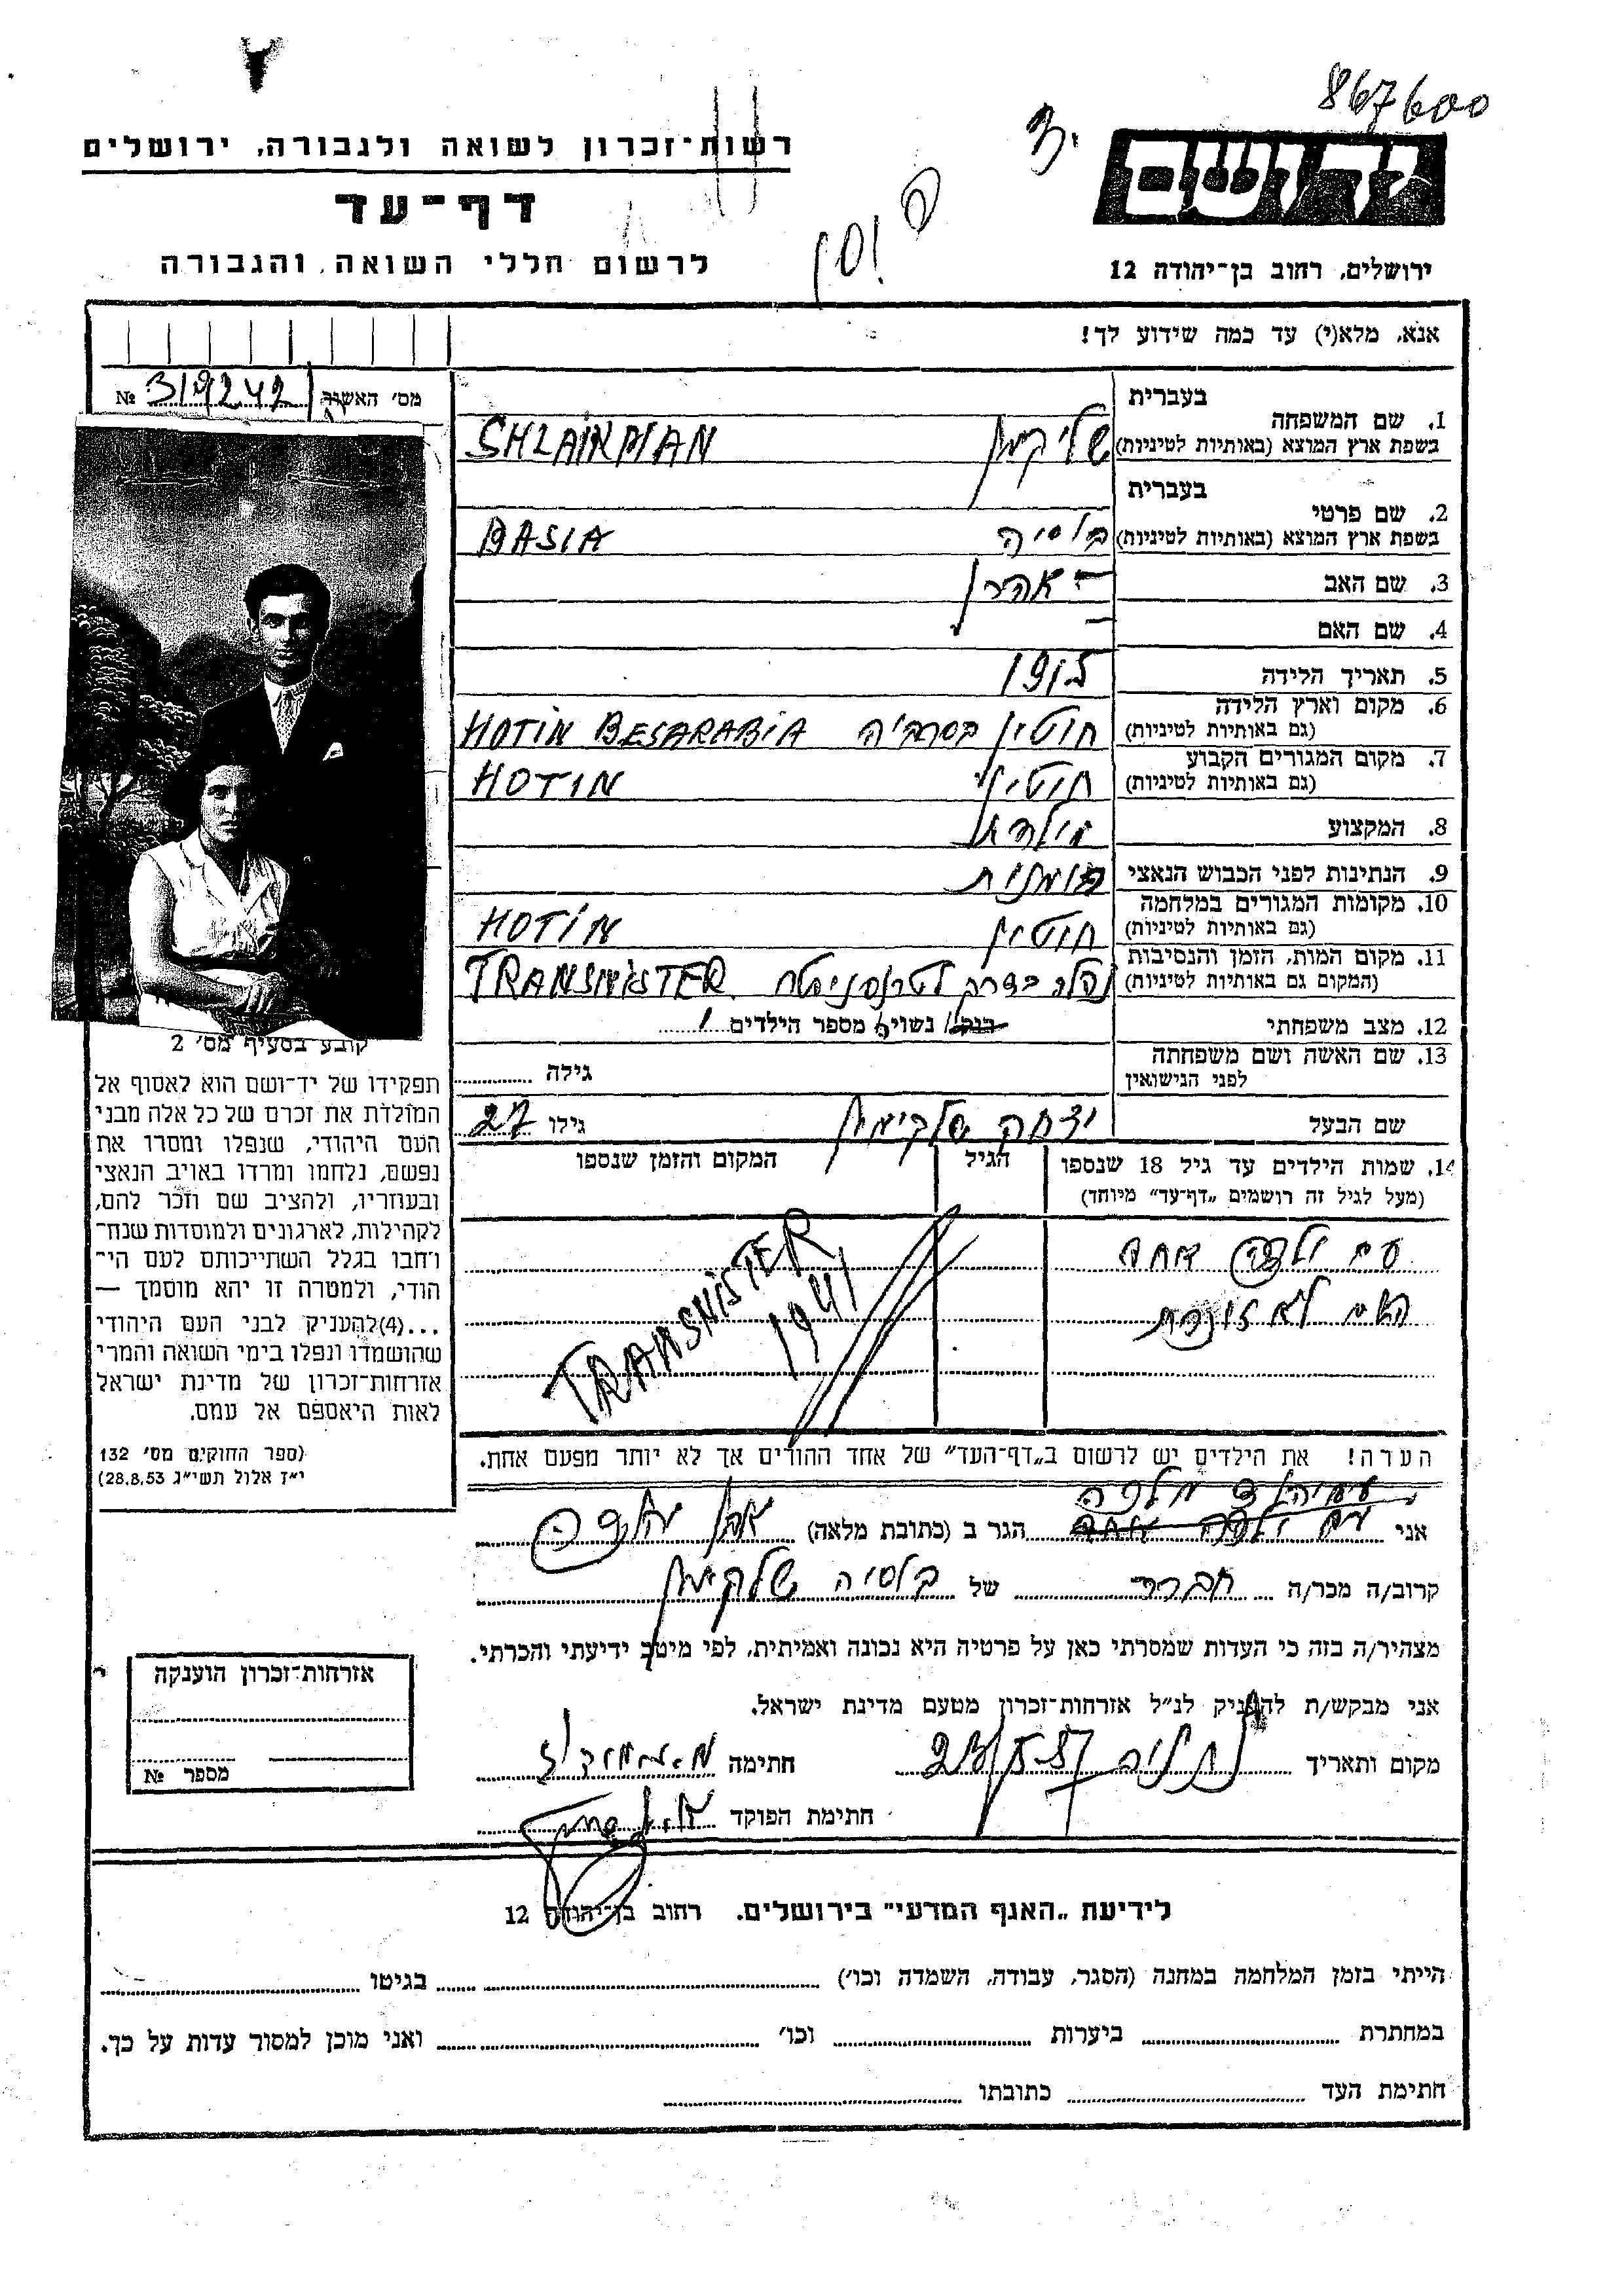 867600
יד ושם
רשות־זכרון לשואה ולגבורה, ירושלים
דף־עד
לרשום חללי השואה והגבורה
ירושלים, רחוב בן־יהודה 12
אנא, מלא(י) עד כמה שידוע לך!
מס׳ האשור № 319242
בעברית
1. שם המשפחה
בשפת ארץ המוצא (באותיות לטיניות)
שלייקמן SHLAIKMAN
בעברית
2. שם פרטי
בשפת ארץ המוצא (באותיות לטיניות)
בסיה BASIA
3. שם האב אהרן
4. שם האם –
5. תאריך הלידה 1915
6. מקום וארץ הלידה
(גם באותיות לטיניות)
חוטין בסרביה HOTIN BESARABIA
7. מקום המגורים הקבוע
(גם באותיות לטיניות)
חוטין HOTIN
8. המקצוע
9. הנתינות לפני הכבוש הנאצי רומנית
10. מקומות המגורים במלחמה
(גם באותיות לטיניות)
חוטין HOTIN
11. מקום המות, הזמן והנסיבות
(המקום גם באותיות לטיניות)
בדרך לטרנסניסטר TRANSNISTER
12. מצב משפחתי רווק/ נשוי/ מספר הילדים 1
13. שם האשה ושם משפחתה
לפני הנישואין
גילה
שם הבעל יצחק שלייקמן גילו 27
14. שמות הילדים עד גיל 18 שנספו
(מעל לגיל זה רושמים „דף־עד” מיוחד)
הגיל
המקום והזמן שנספו
עם ילדה אחת
השם לא זוכרת
TRANSNISTER
1941
הערה! את הילדים יש לרשום ב„דף־העד” של אחד ההורים אך לא יותר מפעם אחת.
קובע בסעיף מס׳ 2
תפקידו של יד־ושם הוא לאסוף אל
המולדת את זכרם של כל אלה מבני
העם היהודי, שנפלו ומסרו את
נפשם, נלחמו ומרדו באויב הנאצי
ובעוזריו, ולהציב שם וזכר להם,
לקהילות, לארגונים ולמוסדות שנח־
רחבו בגלל השתייכותם לעם הי־
הודי, ולמטרה זו יהא מוסמך —
...(4) להעניק לבני העם היהודי
שהושמדו ונפלו בימי השואה והמרי
אזרחות־זכרון של מדינת ישראל
לאות היאספם אל עמם.
(ספר החוקים מס׳ 132
י״ז אלול תשי״ג 28.8.53)
אני מלכה הגר ב (כתובת מלאה) אבן יהודה
קרוב/ה מכר/ה חברה של בסיה שלייקמן
מצהיר/ה בזה כי העדות שמסרתי כאן על פרטיה היא נכונה ואמיתית, לפי מיטב ידיעתי והכרתי.
אני מבקש/ת להעניק לנ״ל אזרחות־זכרון מטעם מדינת ישראל.
מקום ותאריך נתניה חתימה
חתימת הפוקד
אזרחות־זכרון הוענקה
מספר №
לידיעת „האגף המדעי” בירושלים. רחוב בן־יהודה 12
הייתי בזמן המלחמה במחנה (הסגר, עבודה, השמדה וכו׳) בגיטו
במחתרת ביערות וכו׳ ואני מוכן למסור עדות על כך.
חתימת העד כתובתו